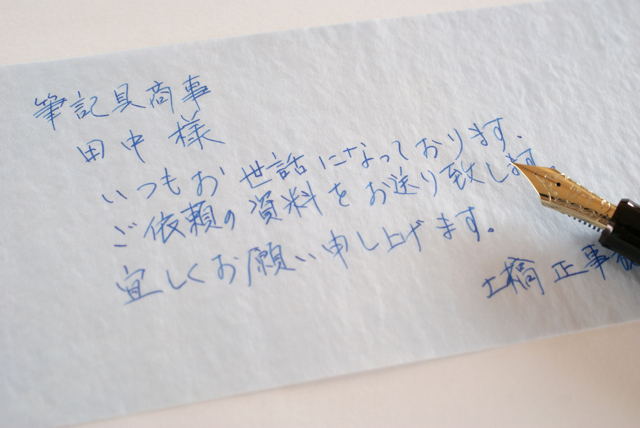 筆記具商事
田中様
いつもお世話になっております.
ご依頼の資料をお送り致します
宜しくお願い申し上げます。
土橋正事